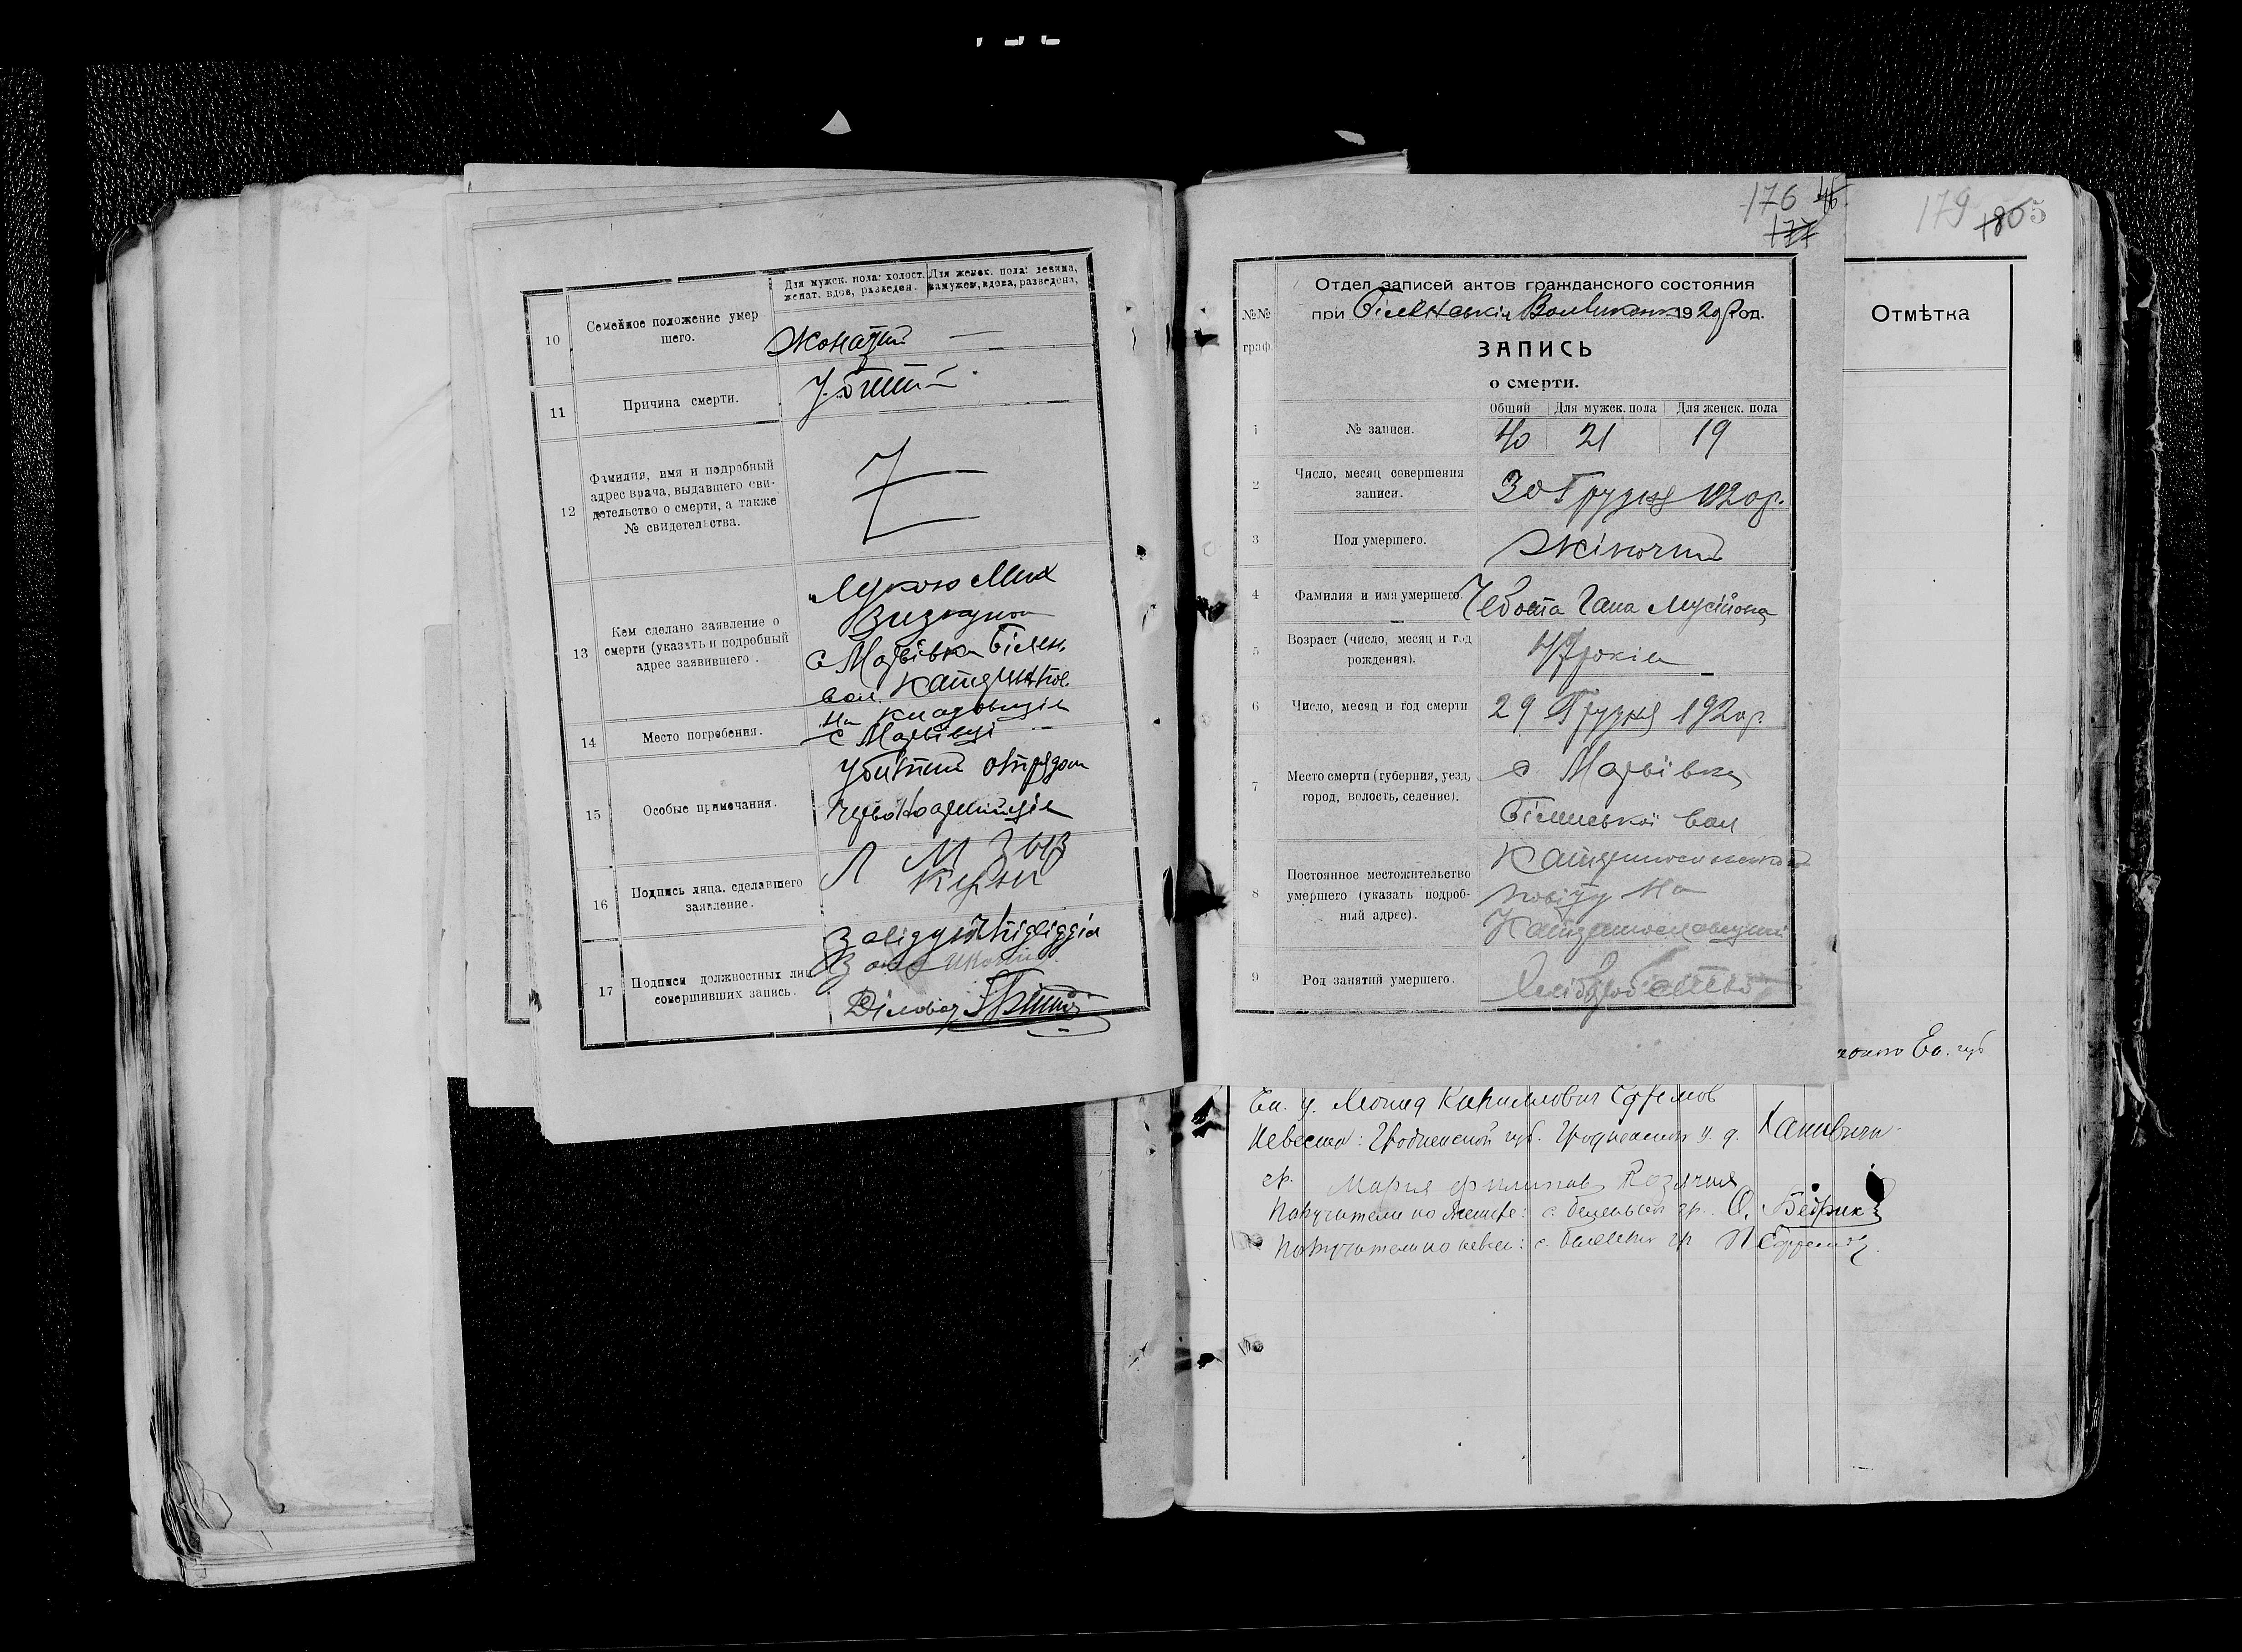 Для мужск. пола: холост. женат. вдов, разведен.
Для женск. пола: девица, замужем, вдова, разведена,
10 Семейное положение умер
шего.
Жонатий —
11 Причина смерти.
Убитий
12 Фамилия, имя и подробный
адрес врача, выдавшего сви-
детельство о смерти, а также
№ свидетельства.
13 Кем сделано заявление о
смерти (указать и подробный
адрес заявившего).
Лукою Мих
с Марвівка Білен.
вол.
14 Место погребения.
на кладовищі
с Марвівці
15 Особые примечания.
Убитий отрядом
16 Подпись лица, сделавшего
заявление.
Л М
17 Подписи должностных лиц
совершивших запись.
Завідуючий
Діловод
176 45
177
№№
граф.
Отдел записей актов гражданского состояния
при Біленськім Волвиконк 1920 год.
ЗАПИСЬ
о смерти.
Общий Для мужск. пола Для женск. пола
1 № записи. 40 21 19
2 Число, месяц совершения
записи.
30 Грудня 1920 р.
3 Пол умершего. Жіночий
4 Фамилия и имя умершего. Чебота Гана Мусійовна
5 Возраст (число, месяц и год
рождения).
47 років
6 Число, месяц и год смерти 29 Грудня 1920 р.
7 Место смерти (губерния, уезд,
город, волость, селение).
с Марвівка
Біленської вол
8 Постоянное местожительство
умершего (указать подроб-
ный адрес).
повіту на
9 Род занятий умершего.
Хліборобство
179 180 5
Отмѣтка
Ек. губ
Ек. у. Леонид Кириллович Ефремов
Невеста: Гродненской губ. Гродненскоя у. д.
гр. Мария Филипов Козячия
Поручители по женихе: с. Беленькой гр. О. Бедрик
Поручители по невес: с. Беленькой гр П Ефремов